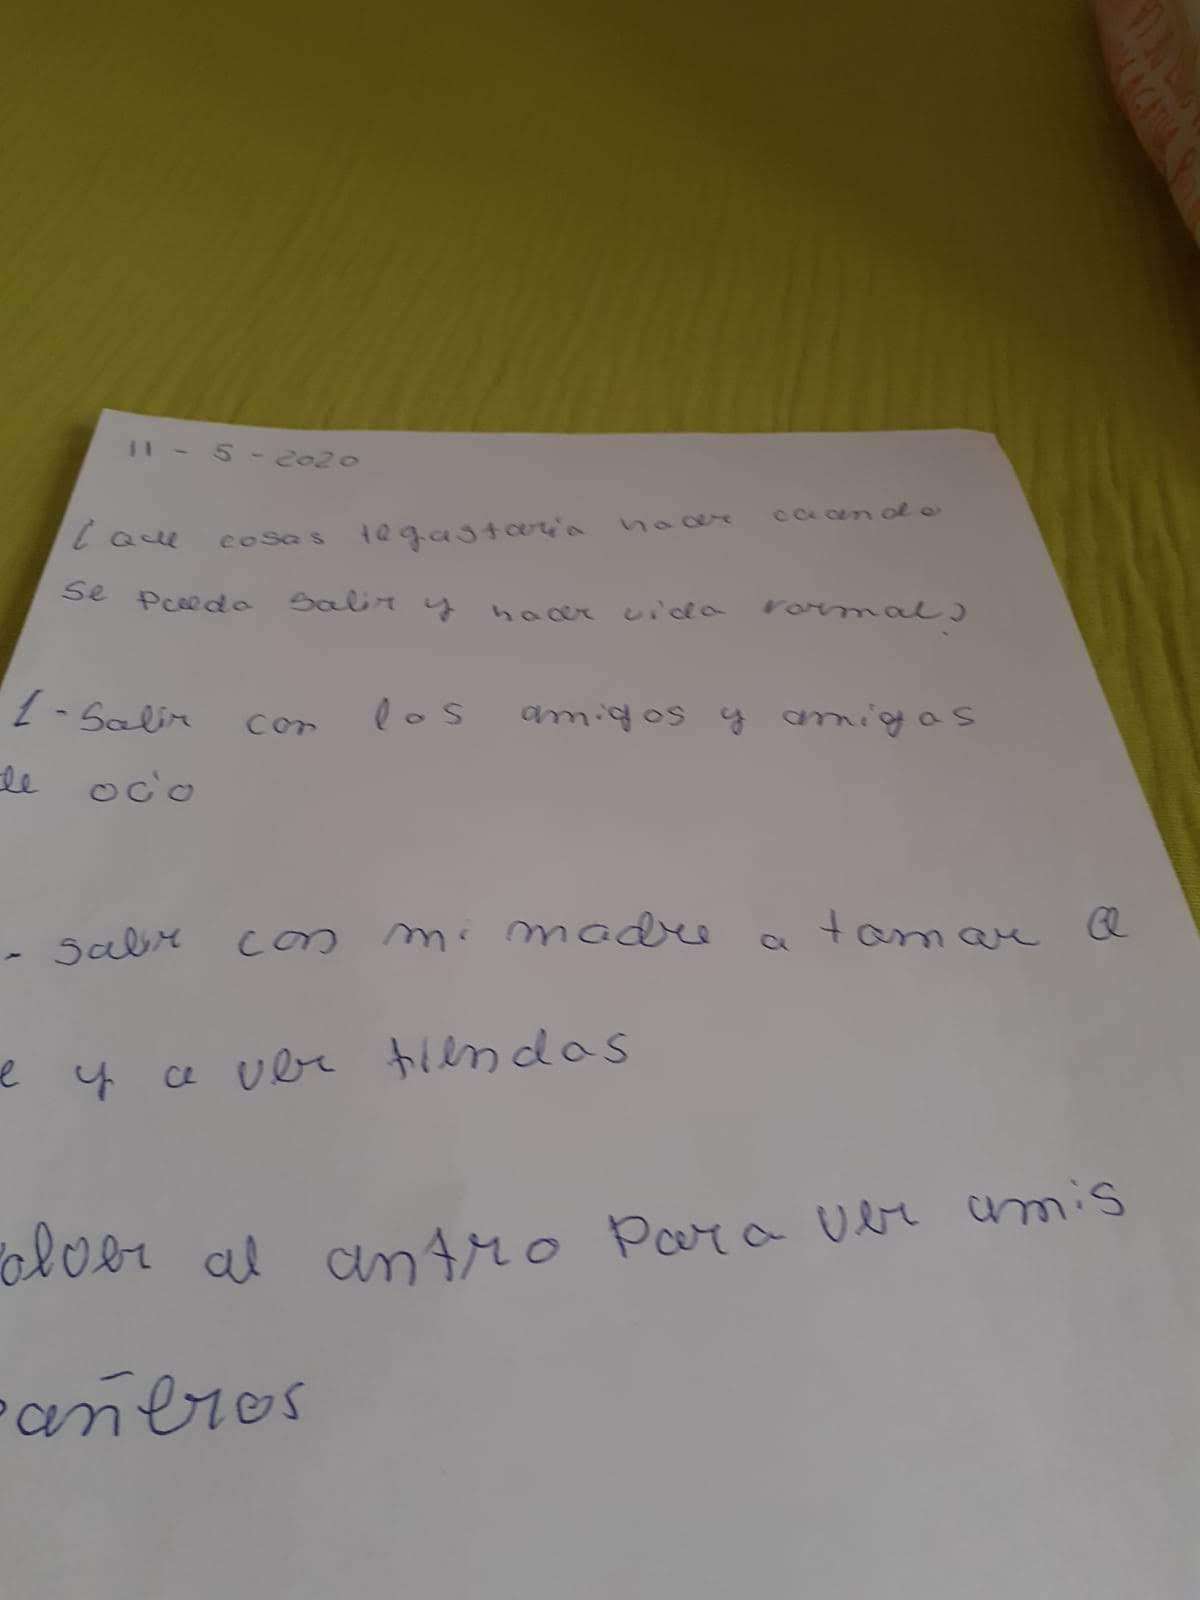 11 - 5 - 2020
¿ que cosas tegustaria hacer cuando
se pueda salir y hacer vida normal?
1 - Salir con los amigos y amigas
de ocio
- salir con mi madre a tomar a
e y a ver tiendas
olver al antro para ver amis
pañeros